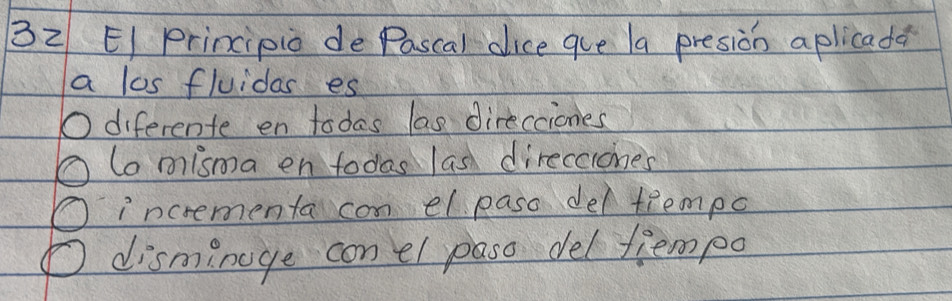 32 El Principio de Pascal dice que la presión aplicada
a los fluidos es
O diferente en todas las direcciones
O la misma en todas las direcciones
O incrementa con el paso del tiempo
O disminuye con el paso del tiempo